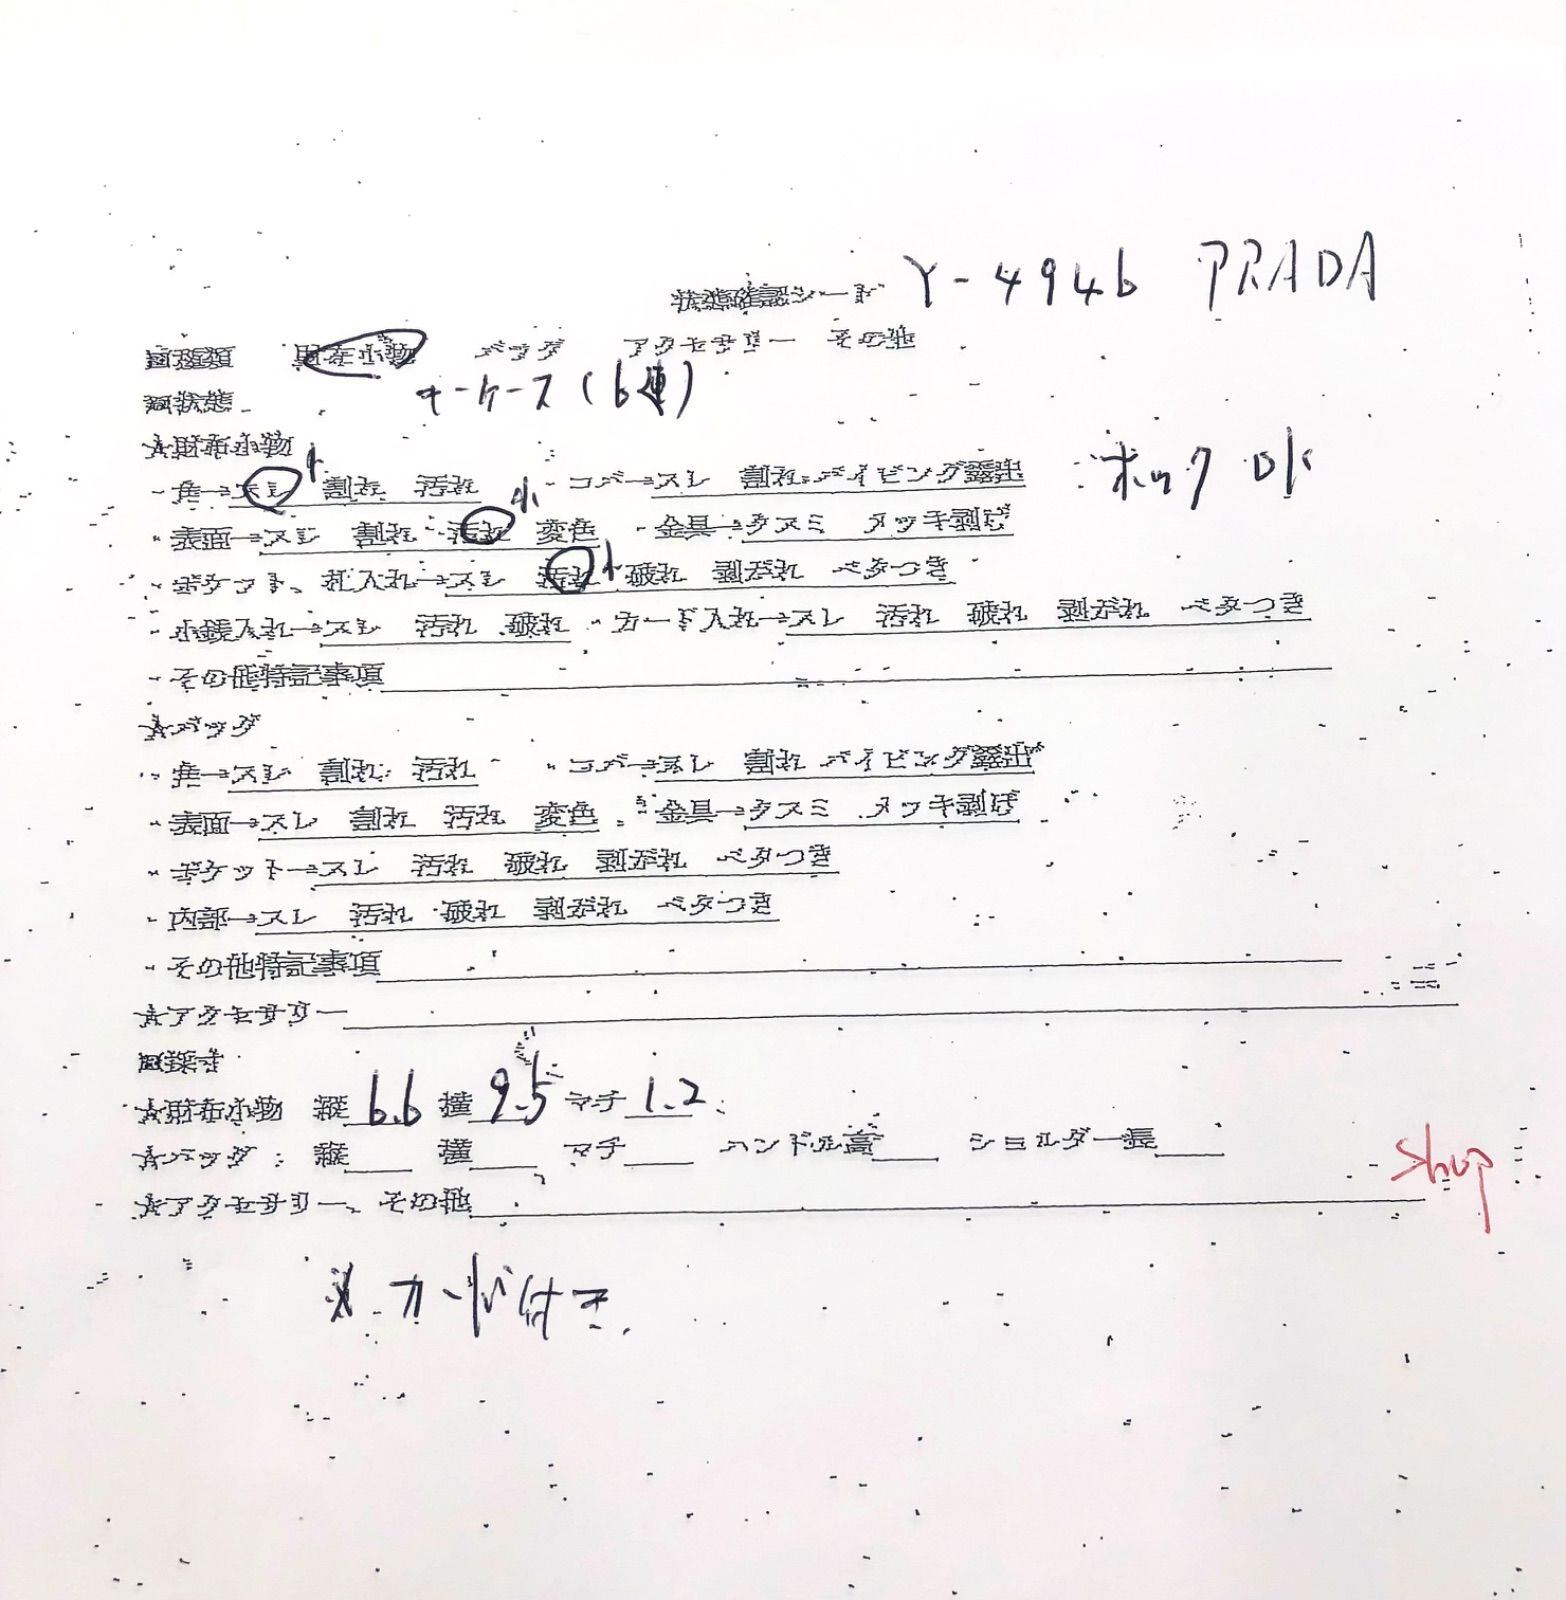 状態確認シート Y-4946 PRADA
■種類 財布小物 バッグ アクセサリー その他
■状態 キーケース(6連)
★財布小物
・角→スレ 小 割れ 汚れ ・コバ→スレ 割れ パイピング露出 ホック OK
・表面→スレ 割れ 汚れ 小 変色 ・金具→クスミ メッキ剥げ
・ポケット、札入れ→スレ 汚れ 小 破れ 剥がれ ベタつき
・小銭入れ→スレ 汚れ 破れ ・カード入れ→スレ 汚れ 破れ 剥がれ ベタつき
・その他特記事項
★バッグ
・角→スレ 割れ 汚れ ・コバ→スレ 割れ パイピング露出
・表面→スレ 割れ 汚れ 変色 ・金具→クスミ メッキ剥げ
・ポケット→スレ 汚れ 破れ 剥がれ ベタつき
・内部→スレ 汚れ 破れ 剥がれ ベタつき
・その他特記事項
★アクセサリー
■採寸
★財布小物 縦 6.6 横 9.5 マチ 1.2
★バッグ 縦 横 マチ ハンドル高 ショルダー長
Shop
★アクセサリー、その他
※カード付き